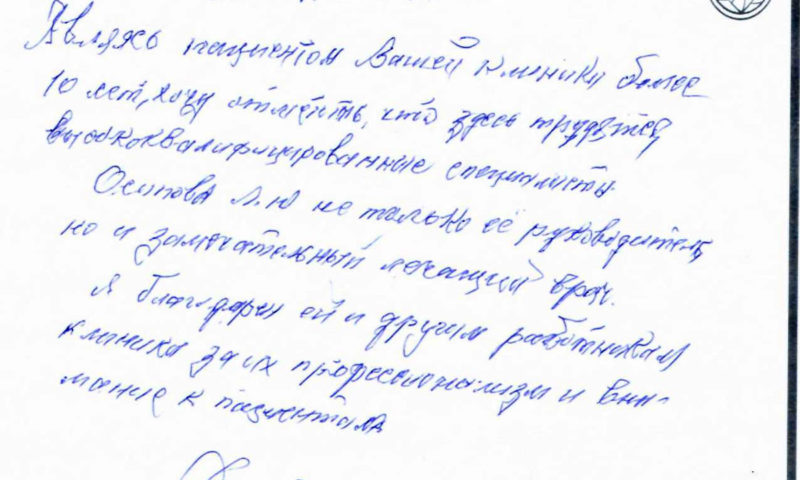 Являясь пациентом Вашей клиники более
10 лет, хочу отметить, что здесь трудятся
высококвалифицированные специалисты.
Осипова Л.Ю не только её руководитель,
но и замечательный лечащий врач.
Я благодарен ей и другим работникам
клиники за их профессионализм и вни-
мание к пациентам